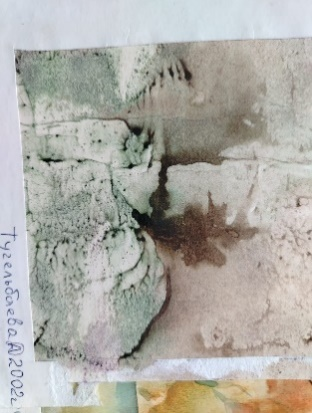 Тугельбаева А 2002г.